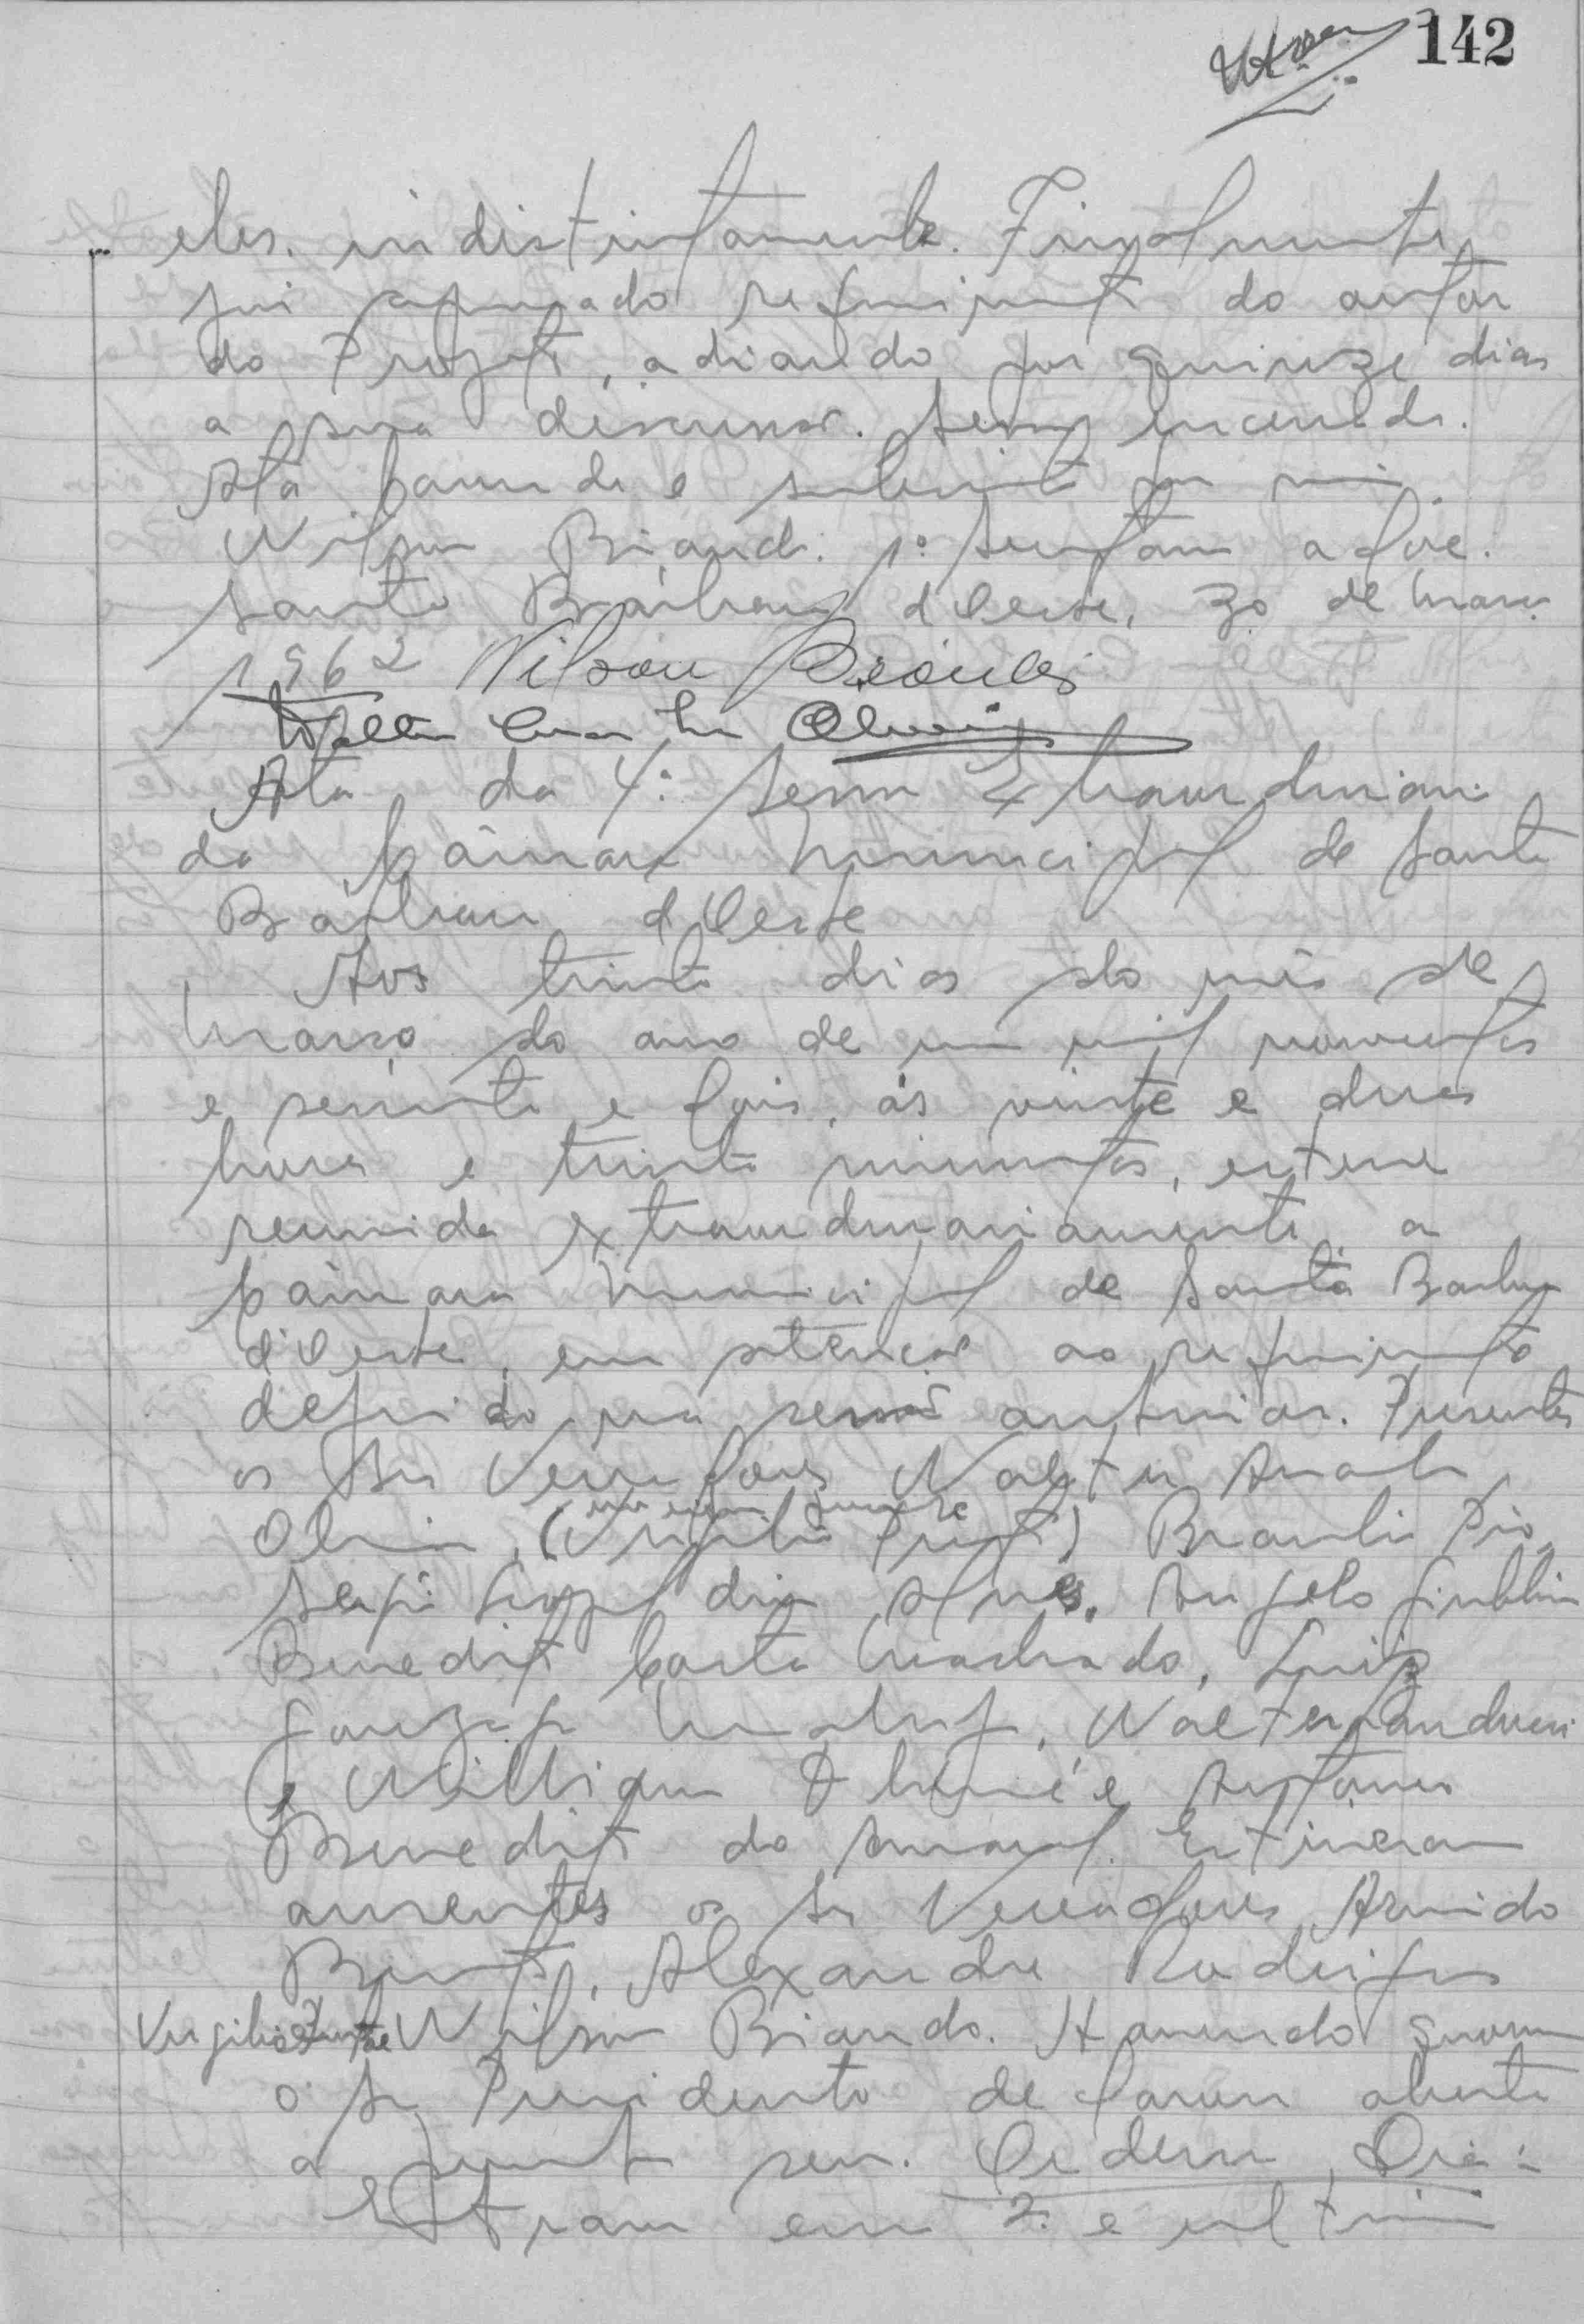 142
eles. indistintamente. Finalmente,
foi aprovado requerimento do autor
do Projeto, adiando por quinze dias
a sua discussão. Sessão encerrada.
Ata lavrada e subscrita por mim
Nilson Briand. 1º Secretario a fiz.
Santa Bárbara d'Oeste, 30 de março
1962 Nilson
Oliveira
Ata da 4ª Sessão Extraordinaria
da Câmara Municipal de Santa
Bárbara d'Oeste
Aos trinta dias do mês de
Março do ano de um mil novecentos
e sessenta e dois, ás vinte e duas
horas e trinta minutos, esteve
reunida extraordinariamente a
Câmara Municipal de Santa Barbara
d'Oeste, em atenção ao requerimento
deferido na sessão anterior. Presentes
os Srs Vereadores Walter
Oliveira, (Virgilio) Braulio Pio,
Alves, Angelo Giubbina
Benedito Costa Machado, Luiz
Gonzaga, Walter Landucci
e Willian e Antonio
Benedito do Amaral. Estiveram
ausentes os Srs Vereadores Armindo
Alexandre Rodrigues
Virgilio Nilson Briand. Havendo quorum
o Sr Presidente declarou aberta
a presente sessão. Ordem Dia:
Entram em 2ª e ultima